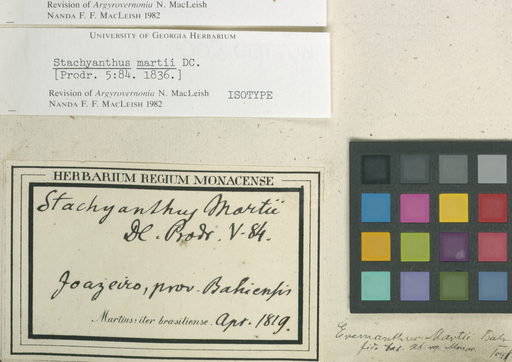 Revision of Argyrovernonia N. MacLeish
NANDA F. F. MACLEISH 1982
UNIVERSITY OF GEORGIA HERBARIUM
Stachyanthus martii DC.
[Prodr. 5:84. 1836.]
Revision of Argyrovernonia N. MacLeish
NANDA F. F. MACLEISH 1982
ISOTYPE
HERBARIUM REGIUM MONACENSE
Stachyanthus Martii
DC. Prodr. V. 84.
Joazeiro, prov. Bahiensis
Martins: iter brasiliense. Apr. 1819.
Eremanthus Martii